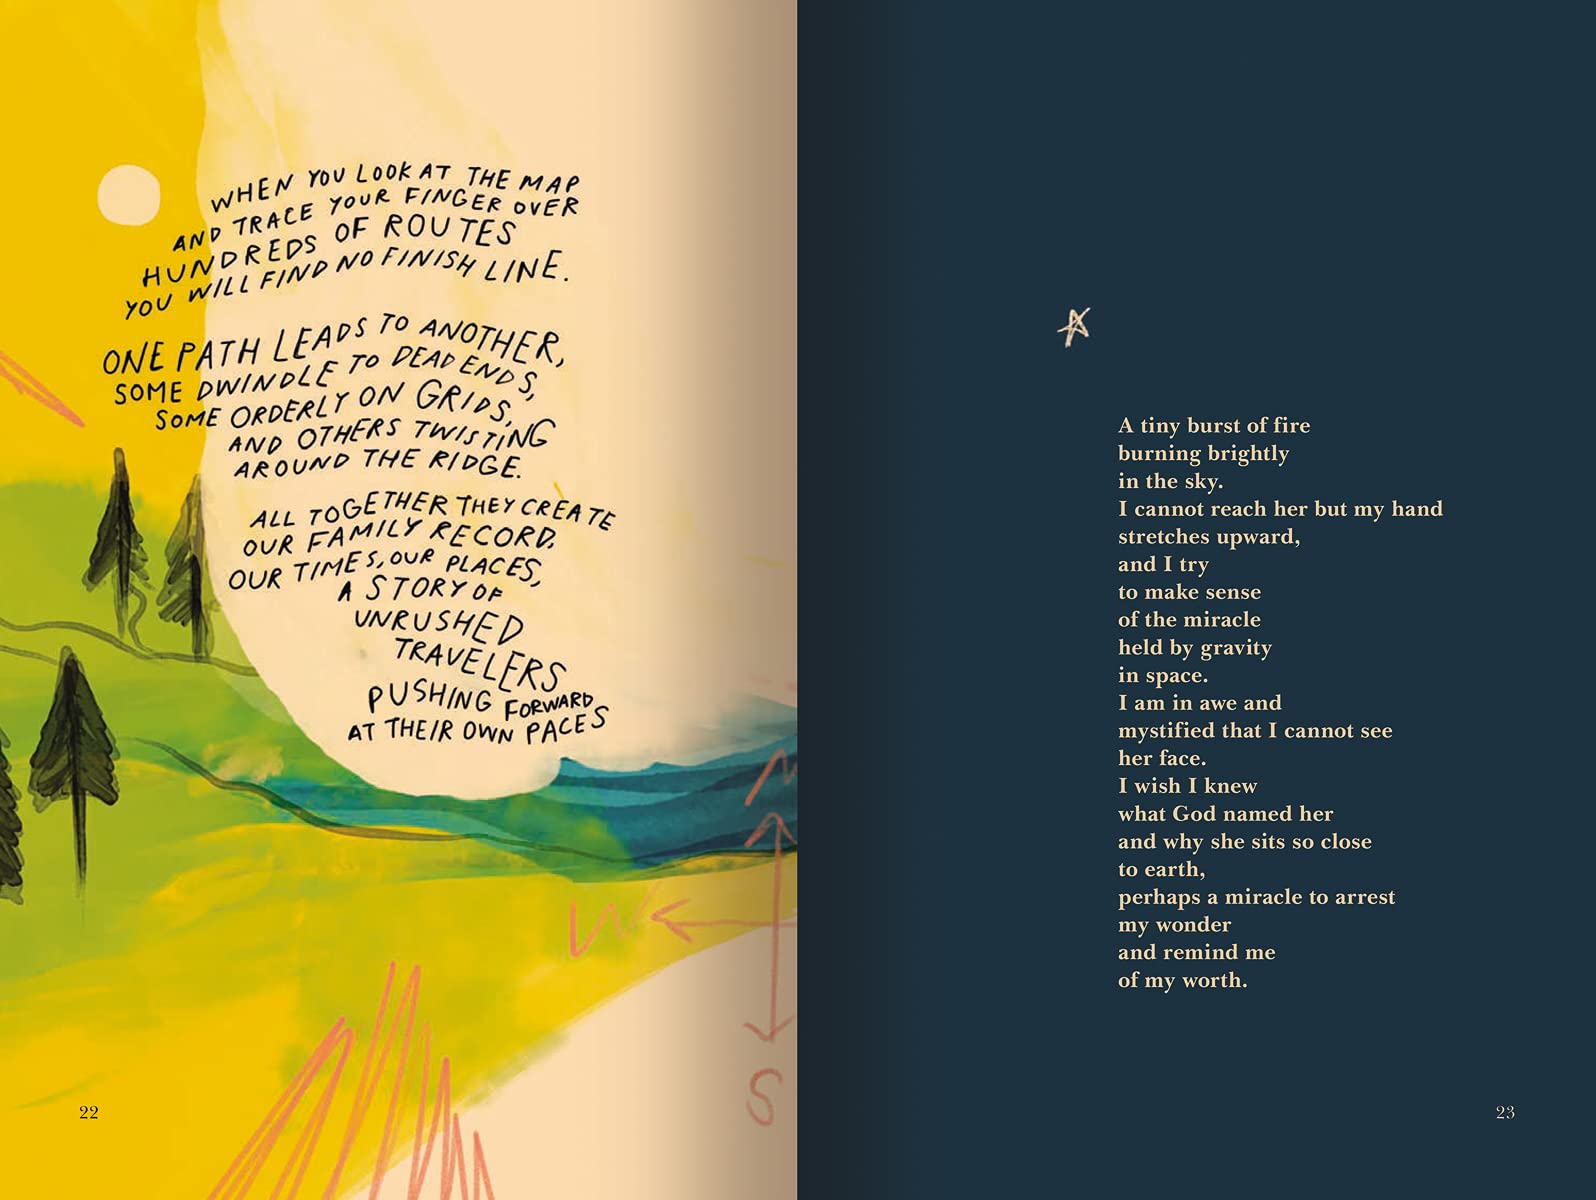 WHEN YOU LOOK AT THE MAP
AND TRACE YOUR FINGER OVER
HUNDREDS OF ROUTES
YOU WILL FIND NO FINISH LINE.
ONE PATH LEADS TO ANOTHER,
SOME DWINDLE TO DEAD ENDS,
SOME ORDERLY ON GRIDS,
AND OTHERS TWISTING
AROUND THE RIDGE.
ALL TOGETHER THEY CREATE
OUR FAMILY RECORD.
OUR TIMES, OUR PLACES,
A STORY OF
UNRUSHED
TRAVELERS
PUSHING FORWARD
AT THEIR OWN PACES
N
W
S
22
A tiny burst of fire
burning brightly
in the sky.
I cannot reach her but my hand
stretches upward,
and I try
to make sense
of the miracle
held by gravity
in space.
I am in awe and
mystified that I cannot see
her face.
I wish I knew
what God named her
and why she sits so close
to earth,
perhaps a miracle to arrest
my wonder
and remind me
of my worth.
23